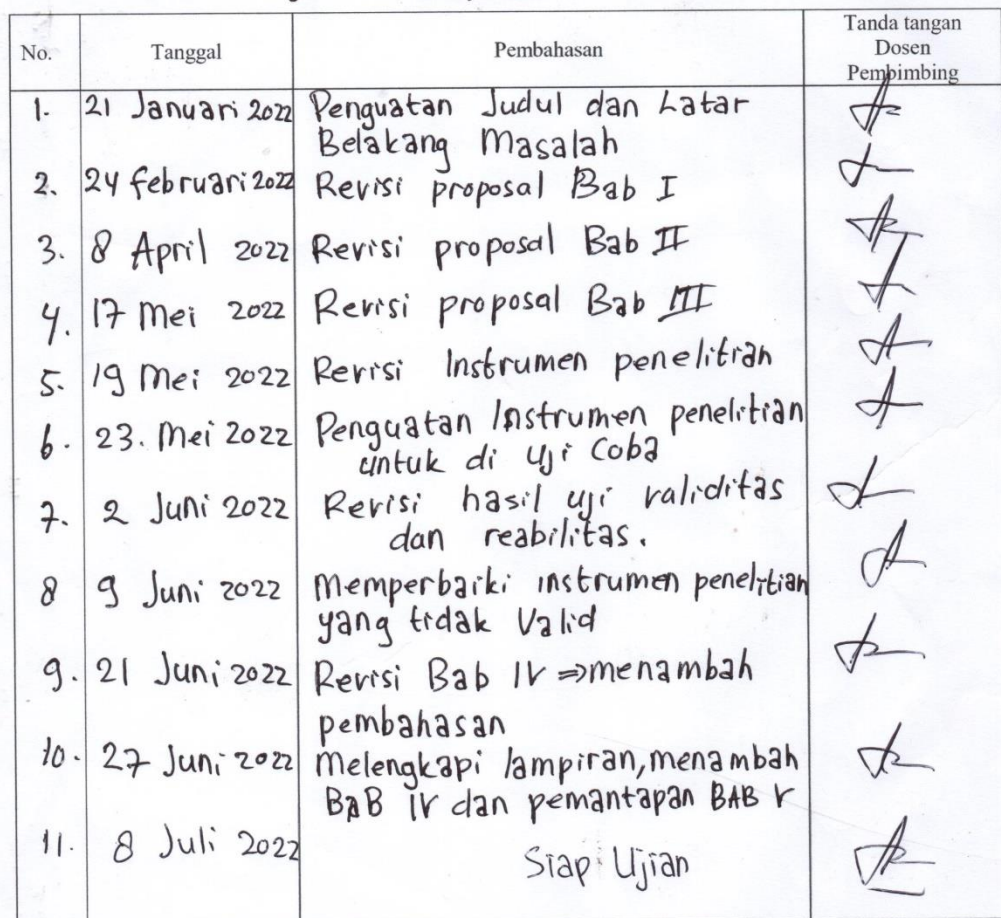 No. Tanggal Pembahasan Tanda tangan Dosen Pembimbing
1. 21 Januari 2022 Penguatan Judul dan Latar
Belakang Masalah
2. 24 februari 2022 Revisi proposal Bab I
3. 8 April 2022 Revisi proposal Bab II
4. 17 Mei 2022 Revisi proposal Bab III
5. 19 Mei 2022 Revisi Instrumen penelitian
6. 23. Mei 2022 Penguatan Instrumen penelitian
untuk di Uji Coba
7. 2 Juni 2022 Revisi hasil uji validitas
dan reabilitas.
8 9 Juni 2022 Memperbaiki instrumen penelitian
yang tidak Valid
9. 21 Juni 2022 Revisi Bab IV ⇒menambah
pembahasan
10. 27 Juni 2022 Melengkapi lampiran, menambah
BAB IV dan pemantapan BAB V
11. 8 Juli 2022 Siap Ujian